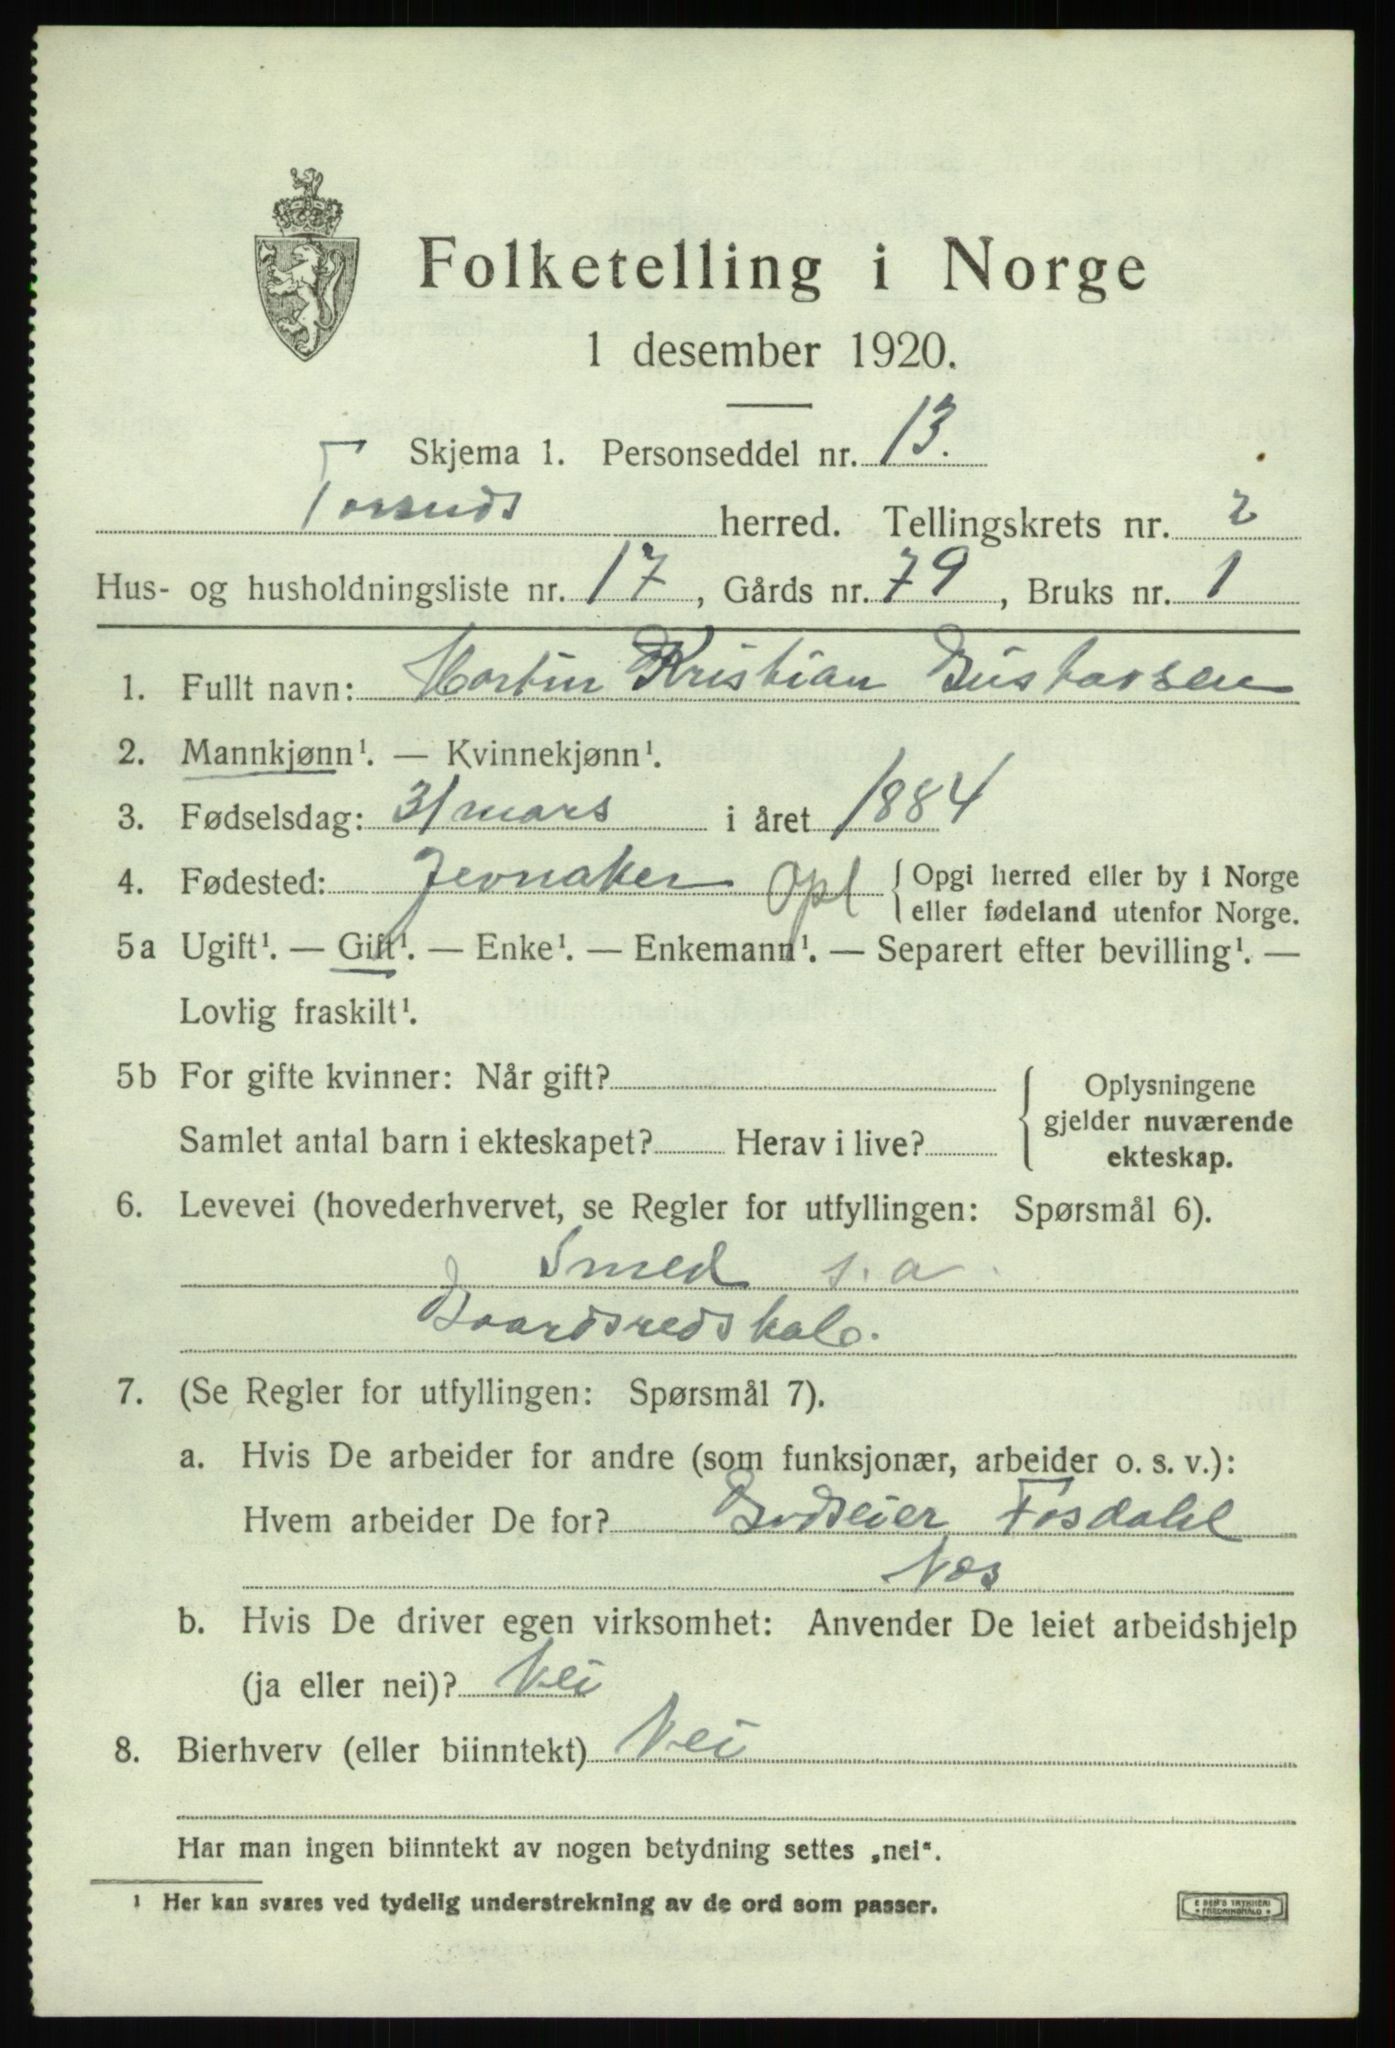 Folketelling i Norge
1 desember 1920.
Skjema 1. Personseddel nr. 13.
Torsnes herred. Tellingskrets nr. 2
Hus- og husholdningsliste nr. 17, Gårds nr. 79, Bruks nr. 1
1. Fullt navn: Martin Kristian Gustavsen
2. Mannkjønn¹. — Kvinnekjønn¹.
3. Fødselsdag: 31 mars i året 1884
4. Fødested: Jevnaker Opl { Opgi herred eller by i Norge
eller fødeland utenfor Norge.
5a Ugift¹. — Gift¹. — Enke¹. — Enkemann¹. — Separert efter bevilling¹. —
Lovlig fraskilt¹.
5b For gifte kvinner: Når gift?
Samlet antal barn i ekteskapet? Herav i live?
{ Oplysningene
gjelder nuværende
ekteskap.
6. Levevei (hovederhvervet, se Regler for utfyllingen: Spørsmål 6).
Smed s.a
Gaardsredskab.
7. (Se Regler for utfyllingen: Spørsmål 7).
a. Hvis De arbeider for andre (som funksjonær, arbeider o. s. v.):
Hvem arbeider De for? Godseier Fosdahl
Nes
b. Hvis De driver egen virksomhet: Anvender De leiet arbeidshjelp
(ja eller nei)? Nei
8. Bierhverv (eller biinntekt) Nei
Har man ingen biinntekt av nogen betydning settes „nei“.
¹ Her kan svares ved tydelig understrekning av de ord som passer.